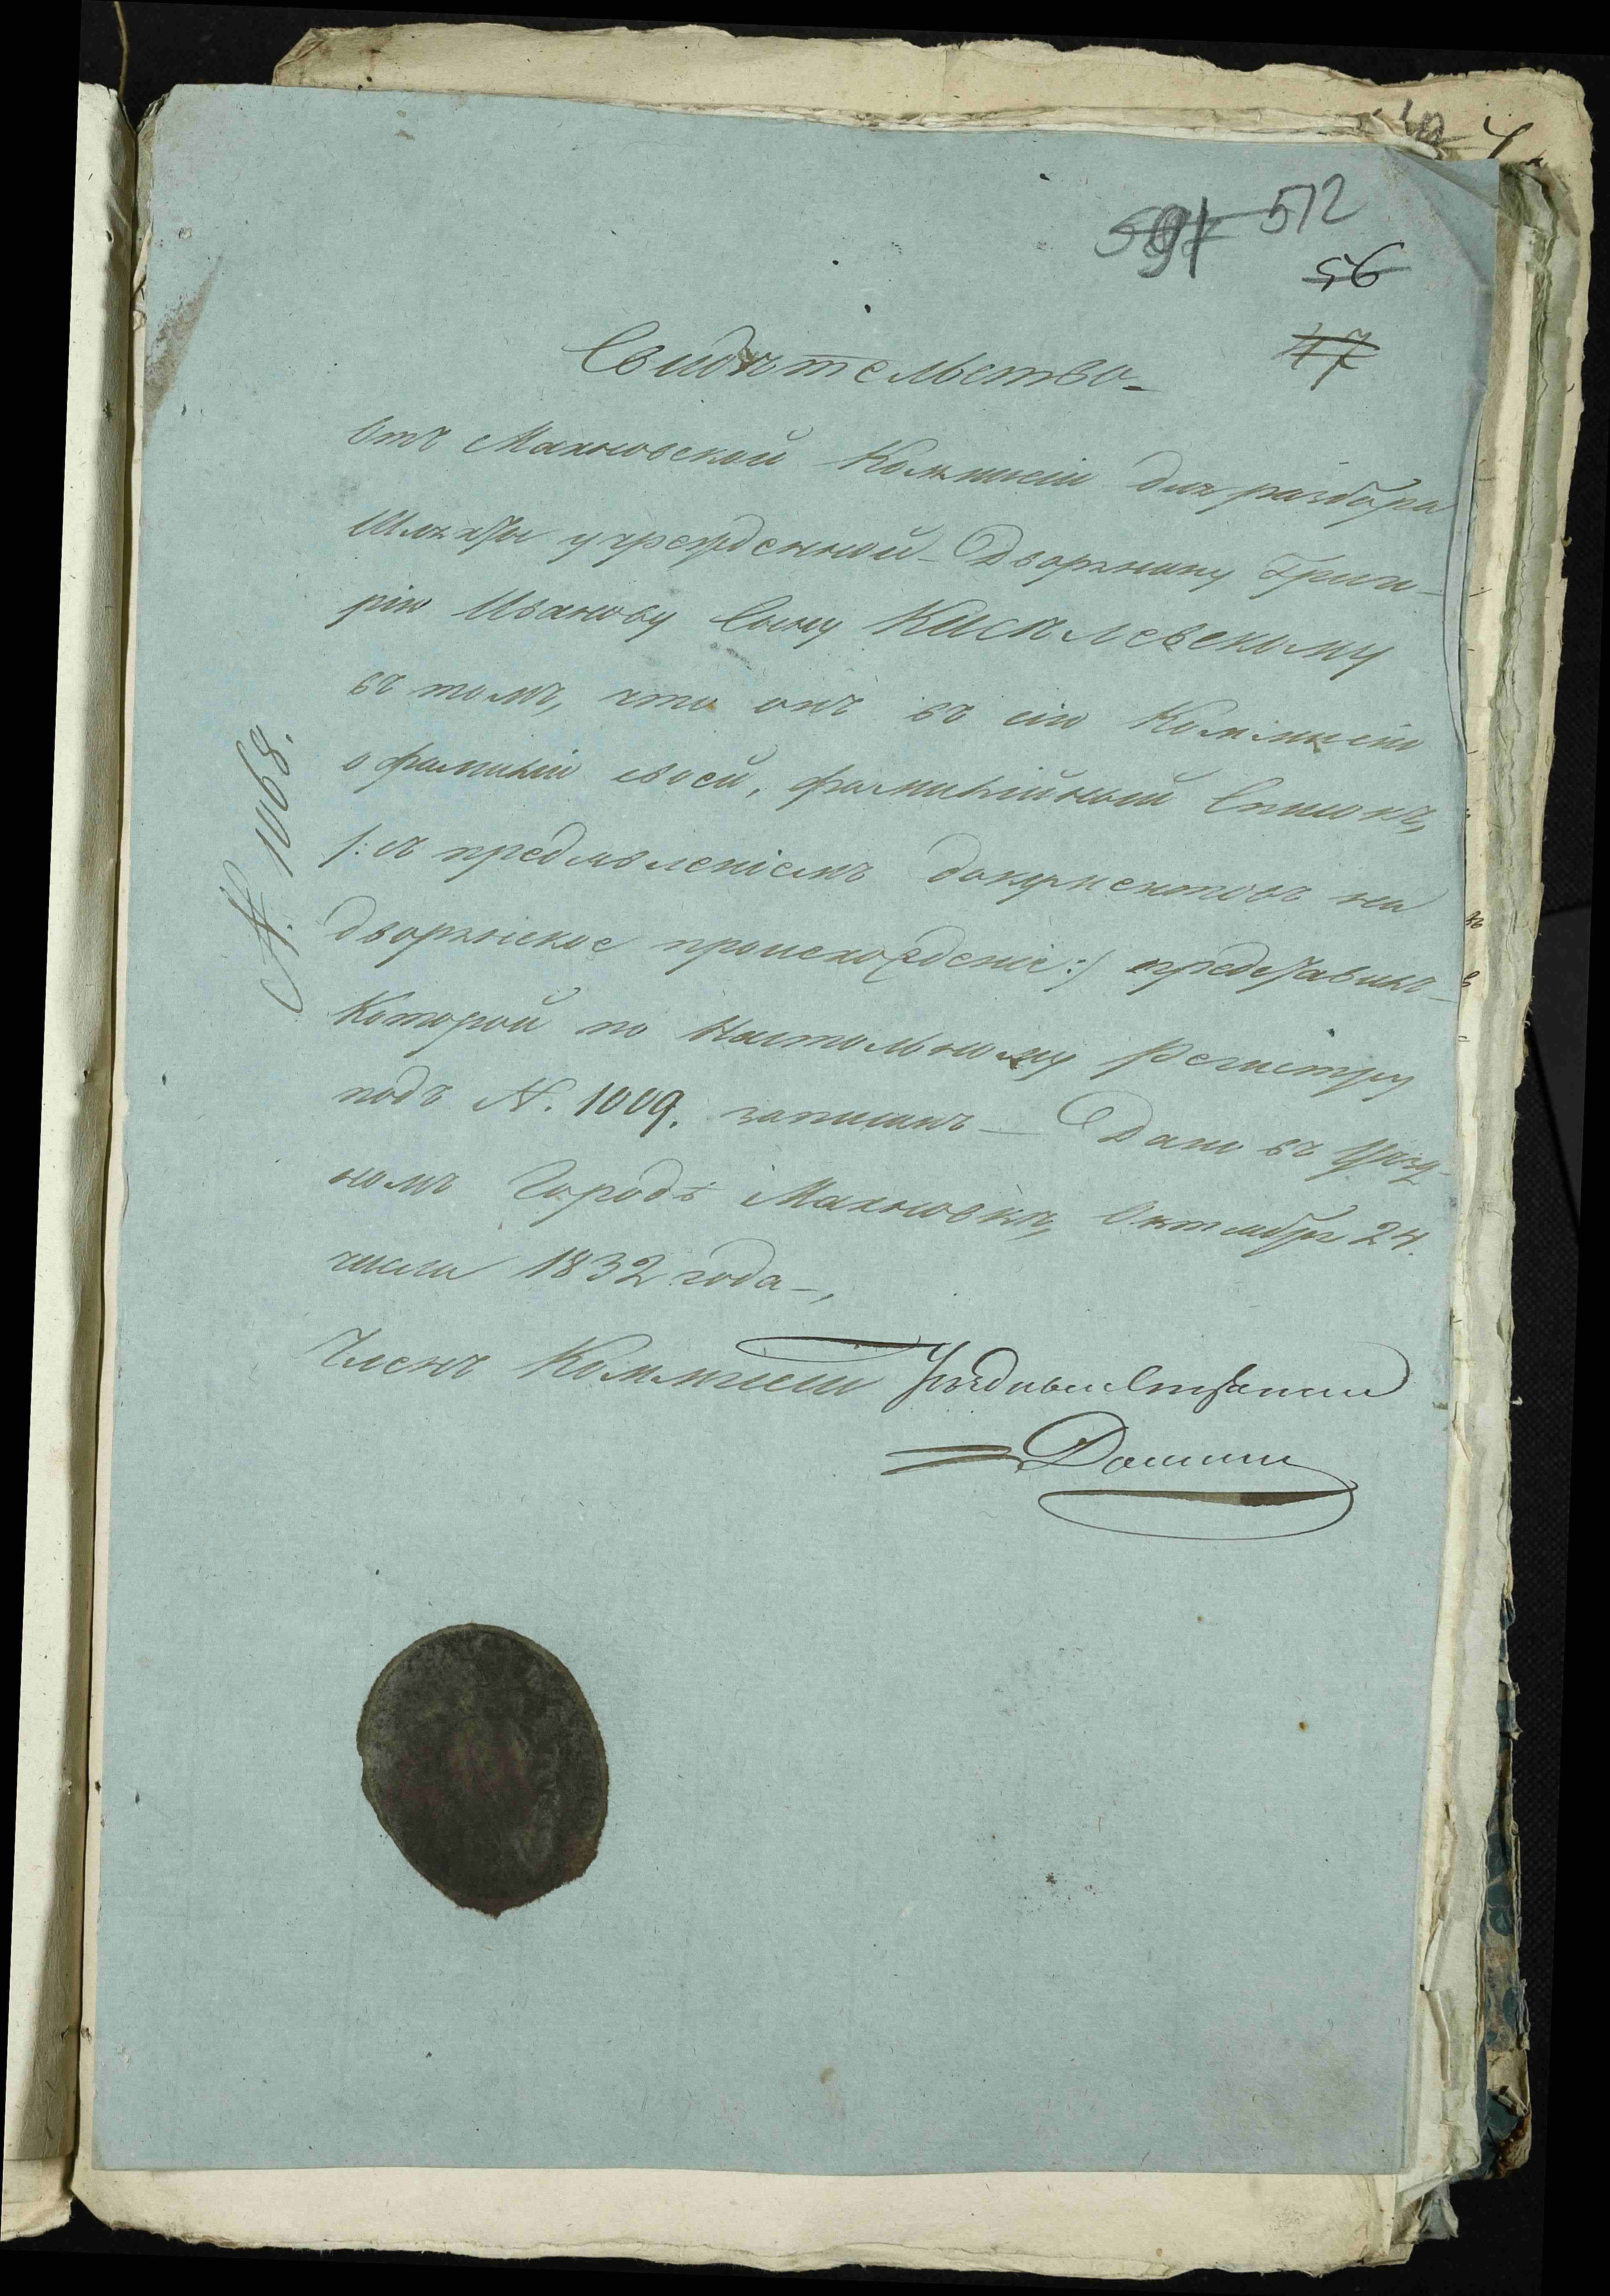 512
56
47
Свидѣтельство
Отъ Махновской Коммисіи для разбора
Шляхты учрежденной – Дворянину Григо-
рію Иванову Сыну Киселевскому
въ томъ, что онъ въ сію Коммисію
о фамиліи своей, фамилійный Списокъ,
/: съ предъявленіемъ документовъ на
дворянское происхожденіе :/ представилъ –
Которой по Настольному Регистру
подъ N. 1009. записанъ – Дано въ Уѣзд-
номъ Городѣ Махновкѣ, Октября 24.
числа 1832 года –,
Членъ Коммисіи Уѣздный Стряпчій
N. 1068.